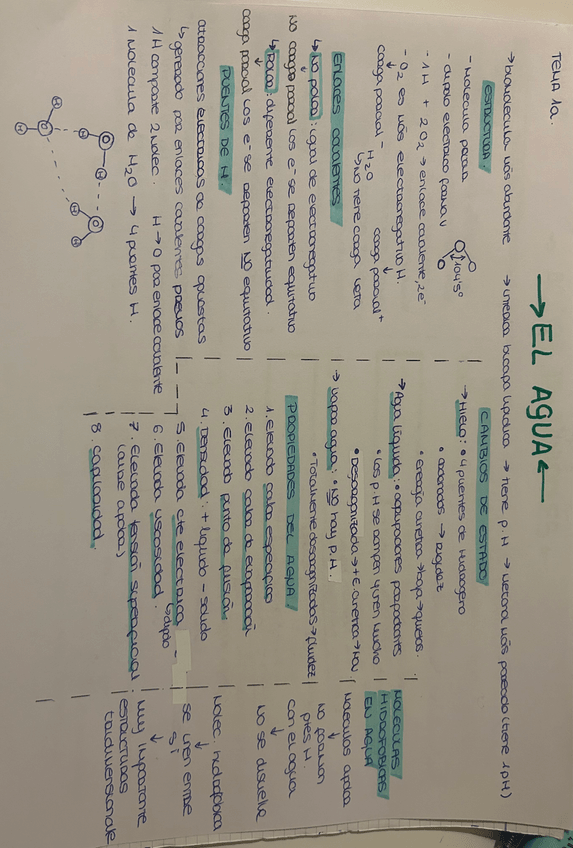 TEMA 1a.
→ EL AGUA ←
→ biomolécula más abundante → interna bicapa lipídica → tiene p.H → metanol más parecido (tiene 1pH)
ESTRUCTURA:
- Molécula polar
- dipolo eléctrico forma V
104'5º
- 1H + 2O₂ → enlace covalente, 2e⁻
- O₂ es más electronegativo H.
carga parcial - carga parcial +
H₂O
↳ NO tiene carga neta
ENLACES COVALENTES
↳ No polar: igual de electronegativo
NO carga parcial los e⁻ se reparten equitativo
↳ Polar: diferente electronegatividad.
carga parcial los e⁻ se reparten NO equitativo
PUENTES DE H.
atracciones eléctricas de cargas opuestas
↳ generado por enlaces covalentes previos
1H comparte 2 molec. H → O por enlace covalente
1 molécula de H₂O → 4 puentes H.
H O H
H O H
O H H
CAMBIOS DE ESTADO
→ Hielo: • 4 puentes de hidrógeno
• ordenados → rigidez
• energía cinética → baja → quietas.
→ Agua líquida: • agrupaciones
• los p.H se rompen y unen
• Desorganizada → + E cinética → mov
→ Vapor agua: • NO hay p.H.
• Totalmente desorganizados → fluidez
PROPIEDADES DEL AGUA:
1. Elevado calor específico
2. Elevado calor de
3. Elevado punto de fusión
4. Densidad: + líquido - sólido
5. Elevada cte eléctrica
↳ dipolo
6. Elevada viscosidad.
7. Elevada tensión superficial
8. Capilaridad.
MOLECULAS
HIDROFOBICAS
EN AGUA
Moléculas apolar
↓
no forman
ptes H.
con el agua
↓
no se disuelve
Molec. hidrofóbica
↓
se unen entre
sí
↓
muy importante
estructuras
tridimensionale